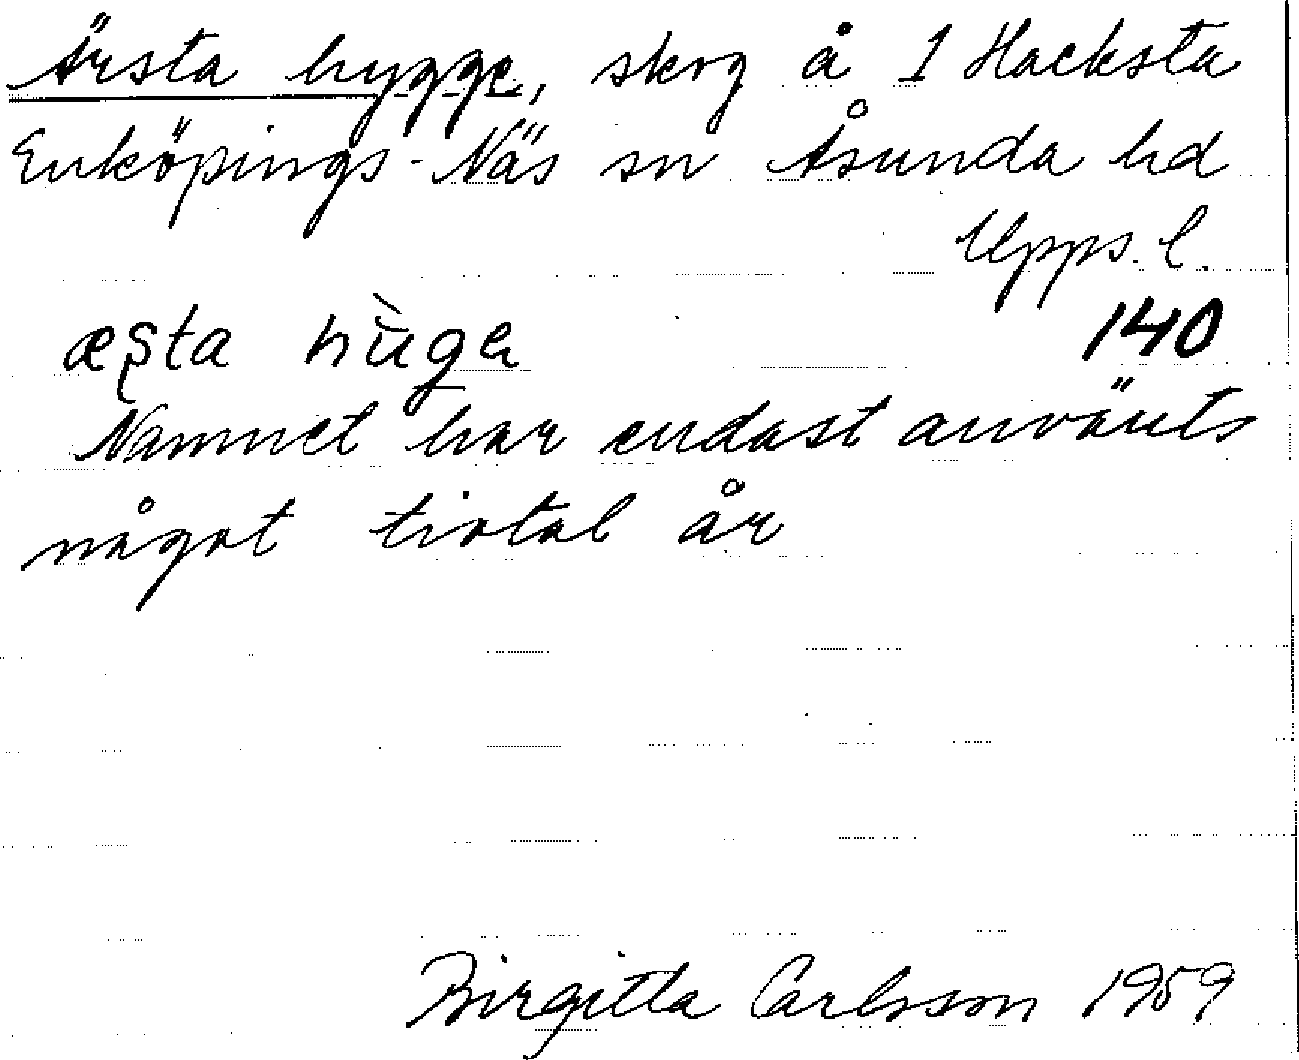 Ärsta hygge, skog å 1 Hacksta
Enköpings-Näs sn Åsunda hd
Upps. l.
æʂta hùgɐ 140
Namnet har endast använts
något tiotal år
Birgitta Carlsson 1959